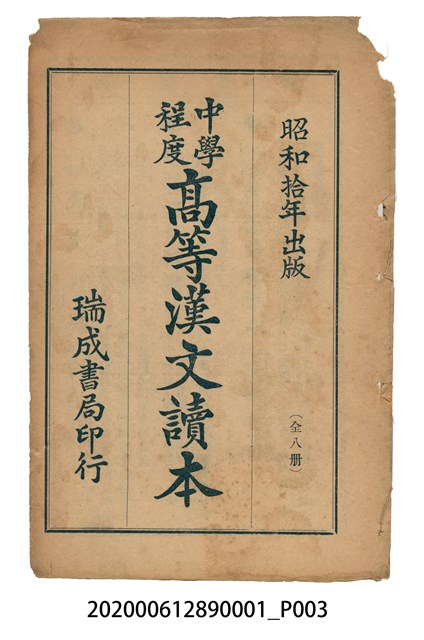 昭和拾年出版
(全八册)
中學程度
高等漢文讀本
瑞成書局印行
202000612890001_P003